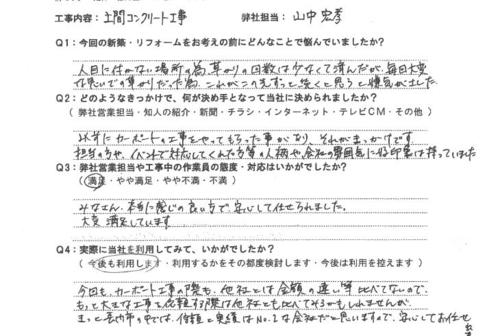 工事内容：土間コンクリート工事 弊社担当：山中 宏孝
Q1：今回の新築・リフォームをお考えの前にどんなことで悩んでいましたか？
人目に付かない場所の為、草かりの回数は少なくて済んだが、毎日大変
な思いでの草かりだった為、これがこの先ずっと続くと思うと嫌気がました
Q2：どのようなきっかけで、何が決め手となって当社に決められましたか？
（弊社営業担当・知人の紹介・新聞・チラシ・インターネット・テレビCM・その他）
以前にカーポートの工事をやってもらった事があり、それがきっかけです。
担当の方や、イベントで対応してくれた方等の人柄や会社の雰囲気に好印象は持っていました
Q3：弊社営業担当や工事中の作業員の態度・対応はいかがでしたか？
（満足・やや満足・やや不満・不満）
みなさん、本当に感じの良い方で安心して任せられました。
大変満足しています
Q4：実際に当社を利用してみて、いかがでしたか？
（今後も利用します・利用するかをその都度検討します・今後は利用を控えます）
今回も、カーポート工事の際も、他社とは金額の違い等比べてないので、
もっと大きな工事を依頼する際は他社とも比べてみるかもしれませんが、
きっと市の中では、信頼と実績はNo.1な会社だと思いますので、安心してお任せ